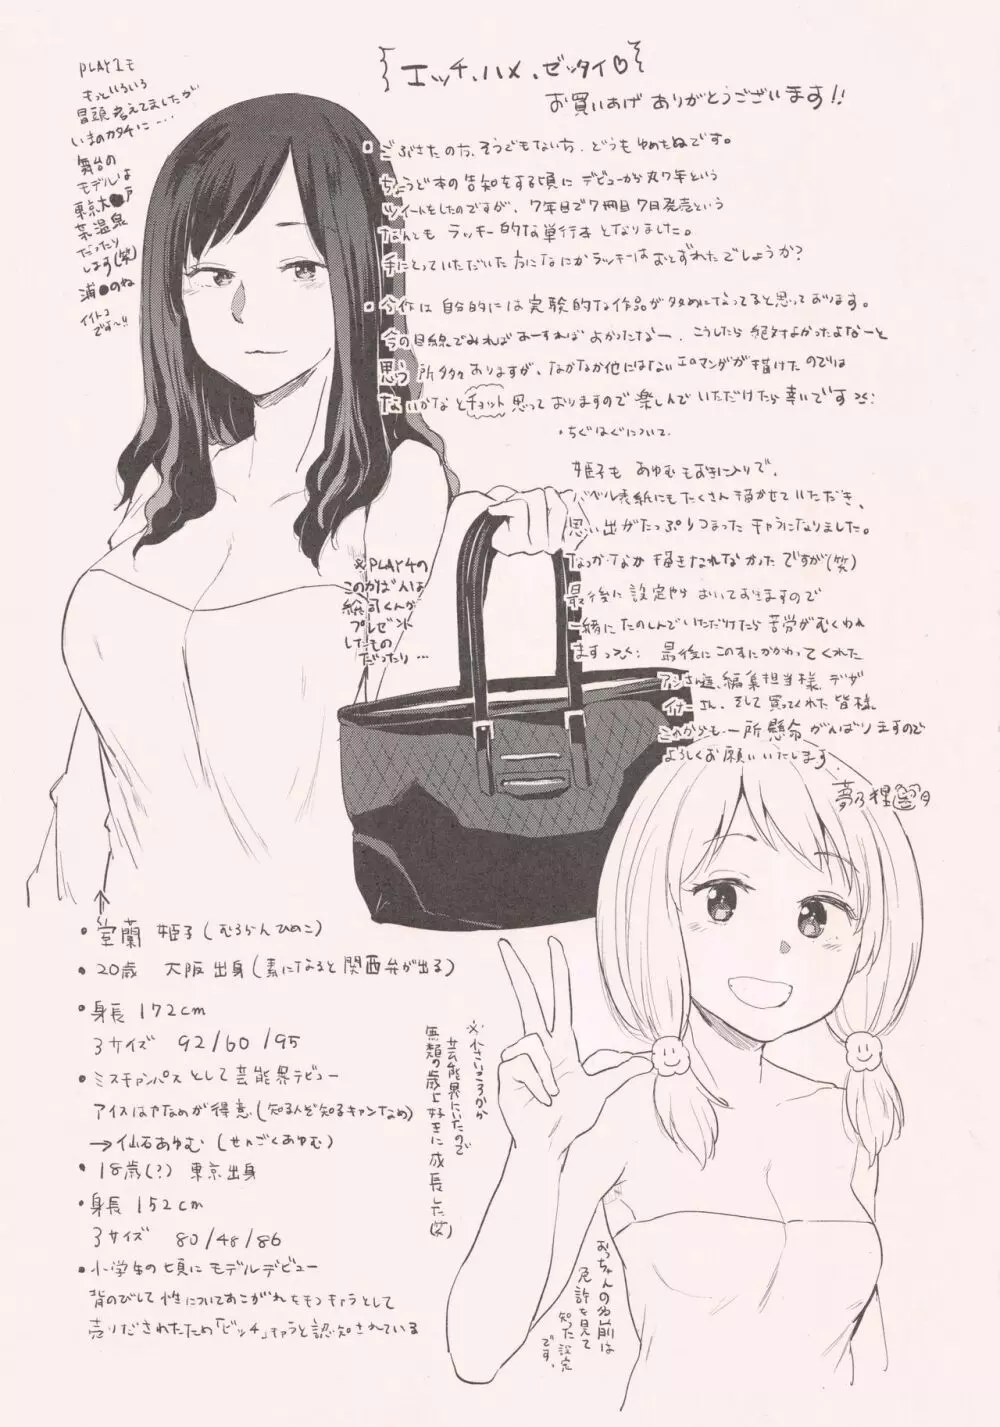 エッチ、ハメ、ゼッタイ♡
お買いあげ ありがとうございます!!
PLAY1も
もっといろいろ
冒頭考えてましたが
いまのカタチに…
舞台の
モデルは
東京大●戸
菜温泉
だったり
します(笑)
浦●のね
イイトコ
です〜!!
ごぶさたの方、そうでもない方、どうもゆめたぬです。
ちょうど本の告知をする頃にデビューから丸7年という
ツイートをしたのですが、7年目で7冊目7日発売という
なんとも ラッキー的な単行本となりました。
手にとっていただいた方になにかラッキーはおとずれたでしょうか?
今作は自分的には実験的な作品が多めになってると思っております。
今の目線でみればあーすればよかったなー、こうしたら絶対よかったよなーと
思う所多々ありますが、なかなか他にはないエロマンガが描けたのでは
ないかなとチョット思っておりますので楽しんでいただけたら幸いです
・ちぐはぐについて
姫子も あゆむもお気に入りで、
バベル表紙にもたくさん描かせていただき、
思い出がたっぷりつまったキャラになりました。
なっかなか描きなれなかったですが(笑)
最後に設定やらおいておきますので
一緒にたのしんでいただけたら苦労がむくわれ
ます 最後にこの本にかかわってくれた
アシさん達、編集担当様、デザ
イナーさん、そして買ってくれた皆様、
これからも一所懸命がんばりますので
よろしくお願いいたします
夢乃狸
※PLAY4の
このかばんは
総司くんが
プレゼント
したもの
だったり…
・室蘭 姫子(むろらんひめこ)
・20歳 大阪出身(素になると関西弁が出る)
・身長 172cm
3サイズ 92/60/95
・ミスキャンパスとして芸能界デビュー
アイスはやなめが得意(知る人ぞ知るキャンなめ)
→仙石あゆむ(せんごくあゆむ)
・18歳(?) 東京出身
・身長 152cm
おっちゃんの名前は
免許を見て
知った設定
です。